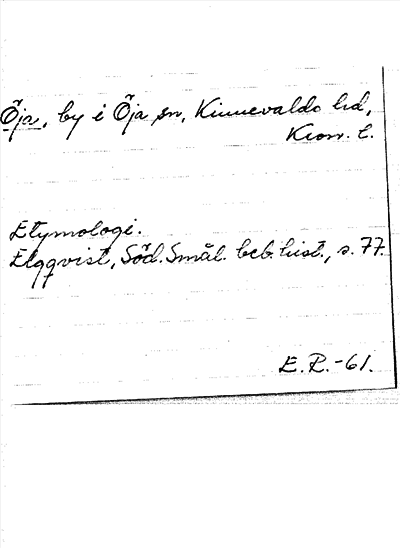 Öja, by i Öja sn, Kinnevalds hd,
Kron. l.
Etymologi.
Elgqvist, Söd. Smål. beb. hist., s. 77.
E. R. -61.